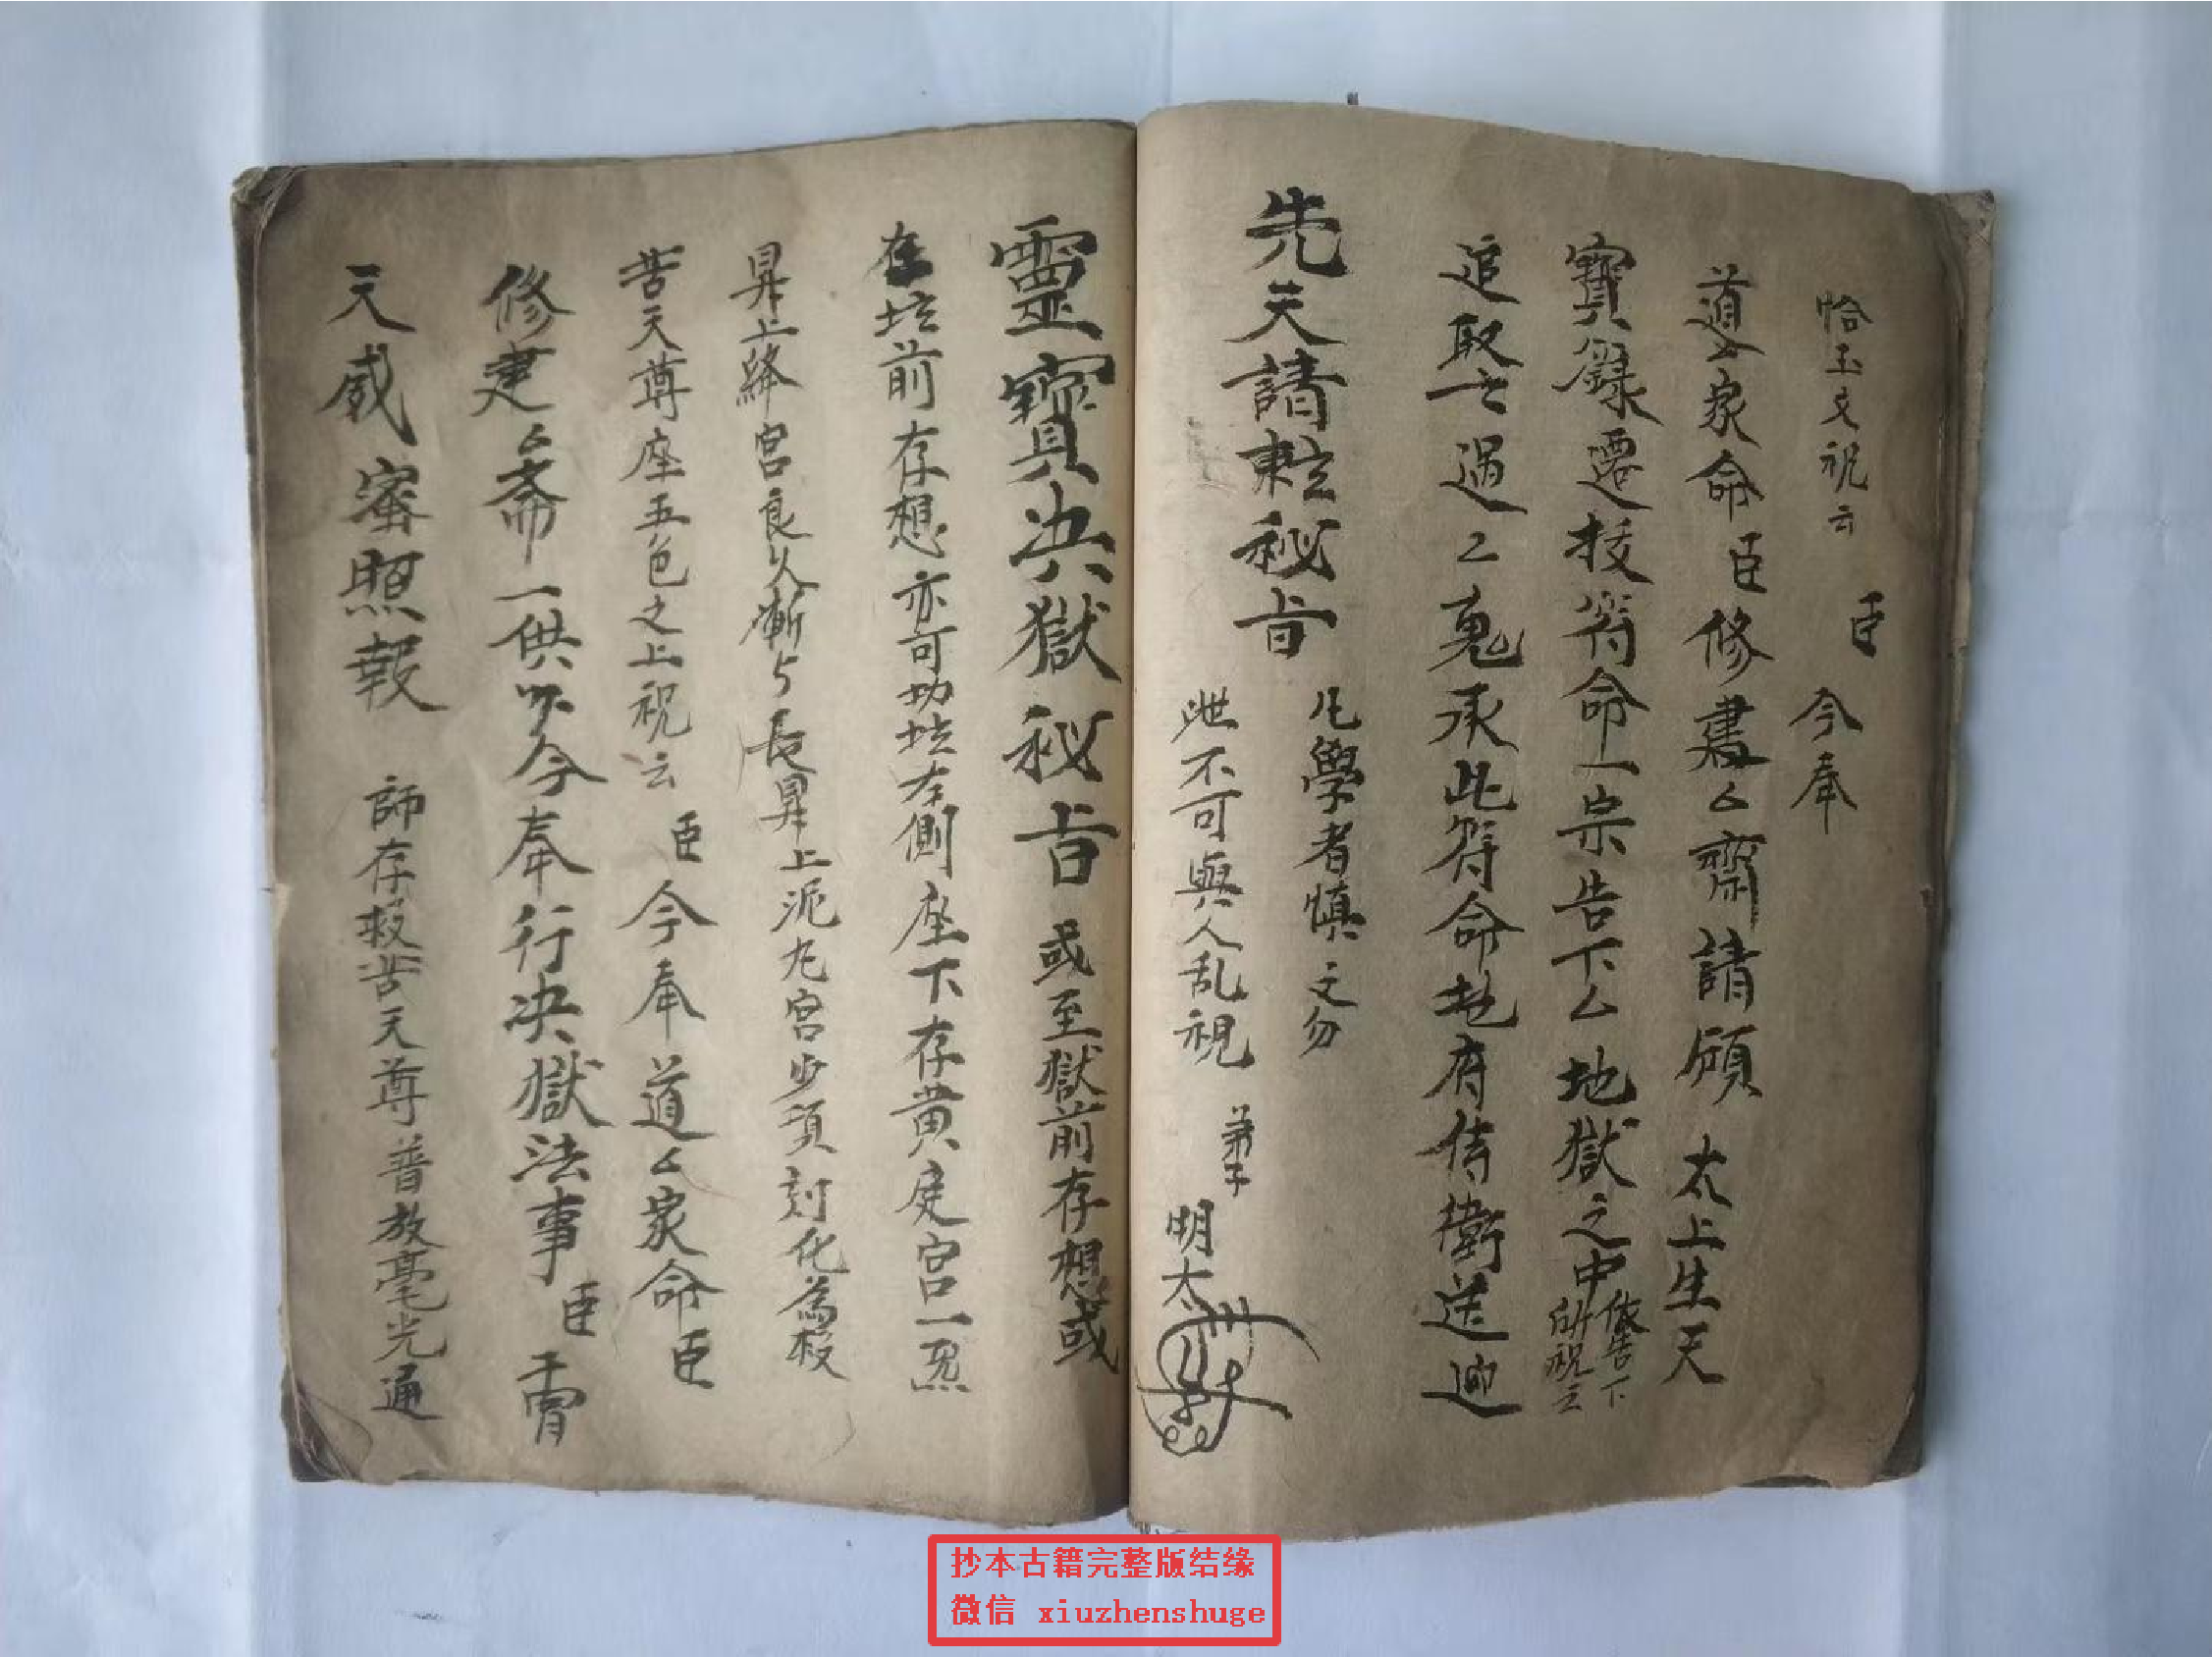 恰玉文祝云 臣 今奉
道厶家命臣修書厶齋請頒 太上生天
寶籙遷拔符命一宗告下厶地獄之中 依告下所祝云
追取亡過亡䰟承此符命地府侍衛送迎
先天請 秘旨 凡學者慎之勿
泄不可與人乱視 弟子 明太
靈寶决獄秘旨 或至獄前存想或
在坛前存想亦可功坛左側座下存黄庭宫一炁
昇上絳宫良久漸与長昇上泥丸宫步須刻化為救
苦天尊座五色之上祝云 臣今奉道厶家命臣
修建厶斋一供 今奉行决獄法事臣干冐
天威 照報 師存救苦天尊普放毫光通
抄本古籍完整版结缘
微信 xiuzhenshuge